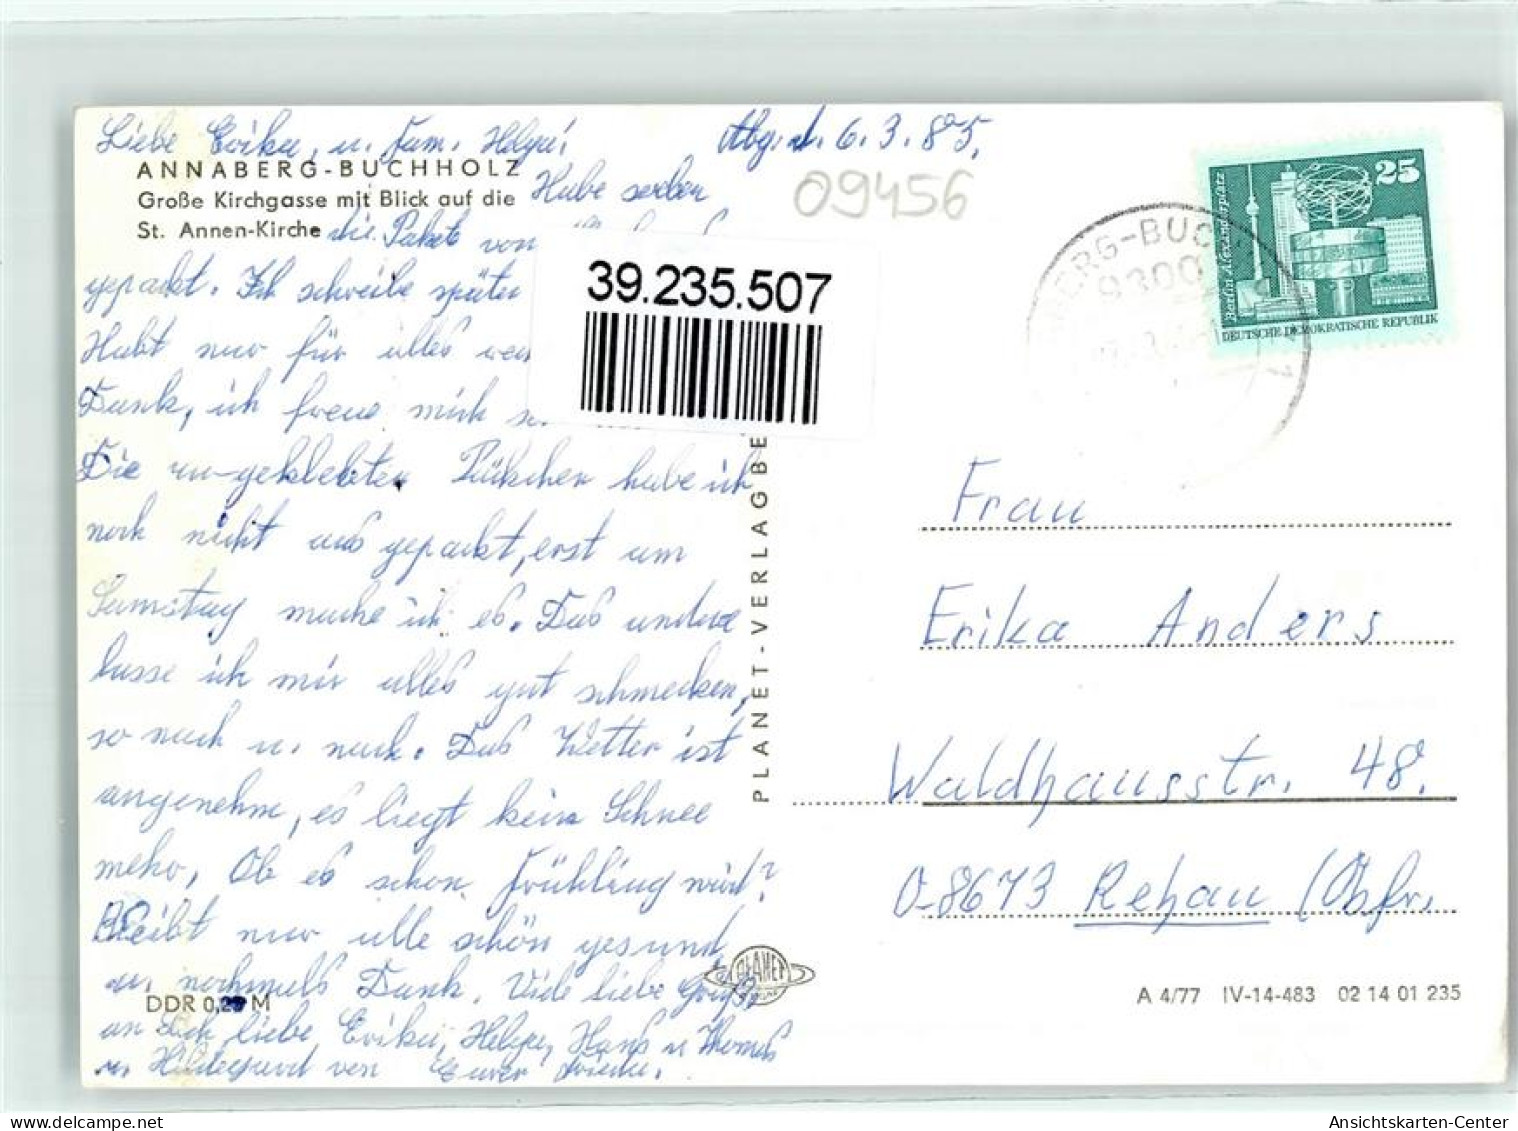 Liebe Erika, u. Fam. Helga! Abg. d. 6.3.85.
ANNABERG-BUCHHOLZ
Große Kirchgasse mit Blick auf die
St. Annen-Kirche
Habe soeben
die Pakete von
gepackt. Ich schreibe später
Habt nur für alles
Dank, ich freue mich
Die zu-geklebten Päckchen habe ich
noch nicht aus gepackt, erst am
Samstag mache ich es. Das andere
lasse ich mir alles gut schmecken,
so nach u. nach. Das Wetter ist
angenehm, es liegt kein Schnee
mehr, Ob es schon Frühling wird?
Bleibt nur alle schön gesund
u. nochmals Dank. Viele liebe Grüße
an Dich liebe Erika, Helga, Hans u Thomas
u. Hildegard von Eurer
DDR 0,20 M
09456
39.235.507
PLANET-VERLAG BE
PLANET
BERG-BUCH
9300
1
25
Berlin, Alexanderplatz
DEUTSCHE DEMOKRATISCHE REPUBLIK
Frau
Erika Anders
Waldhausstr. 48.
D-8673 Rehau (Obfr.
A 4/77 IV-14-483 02 14 01 235
Ansichtskarten-Center